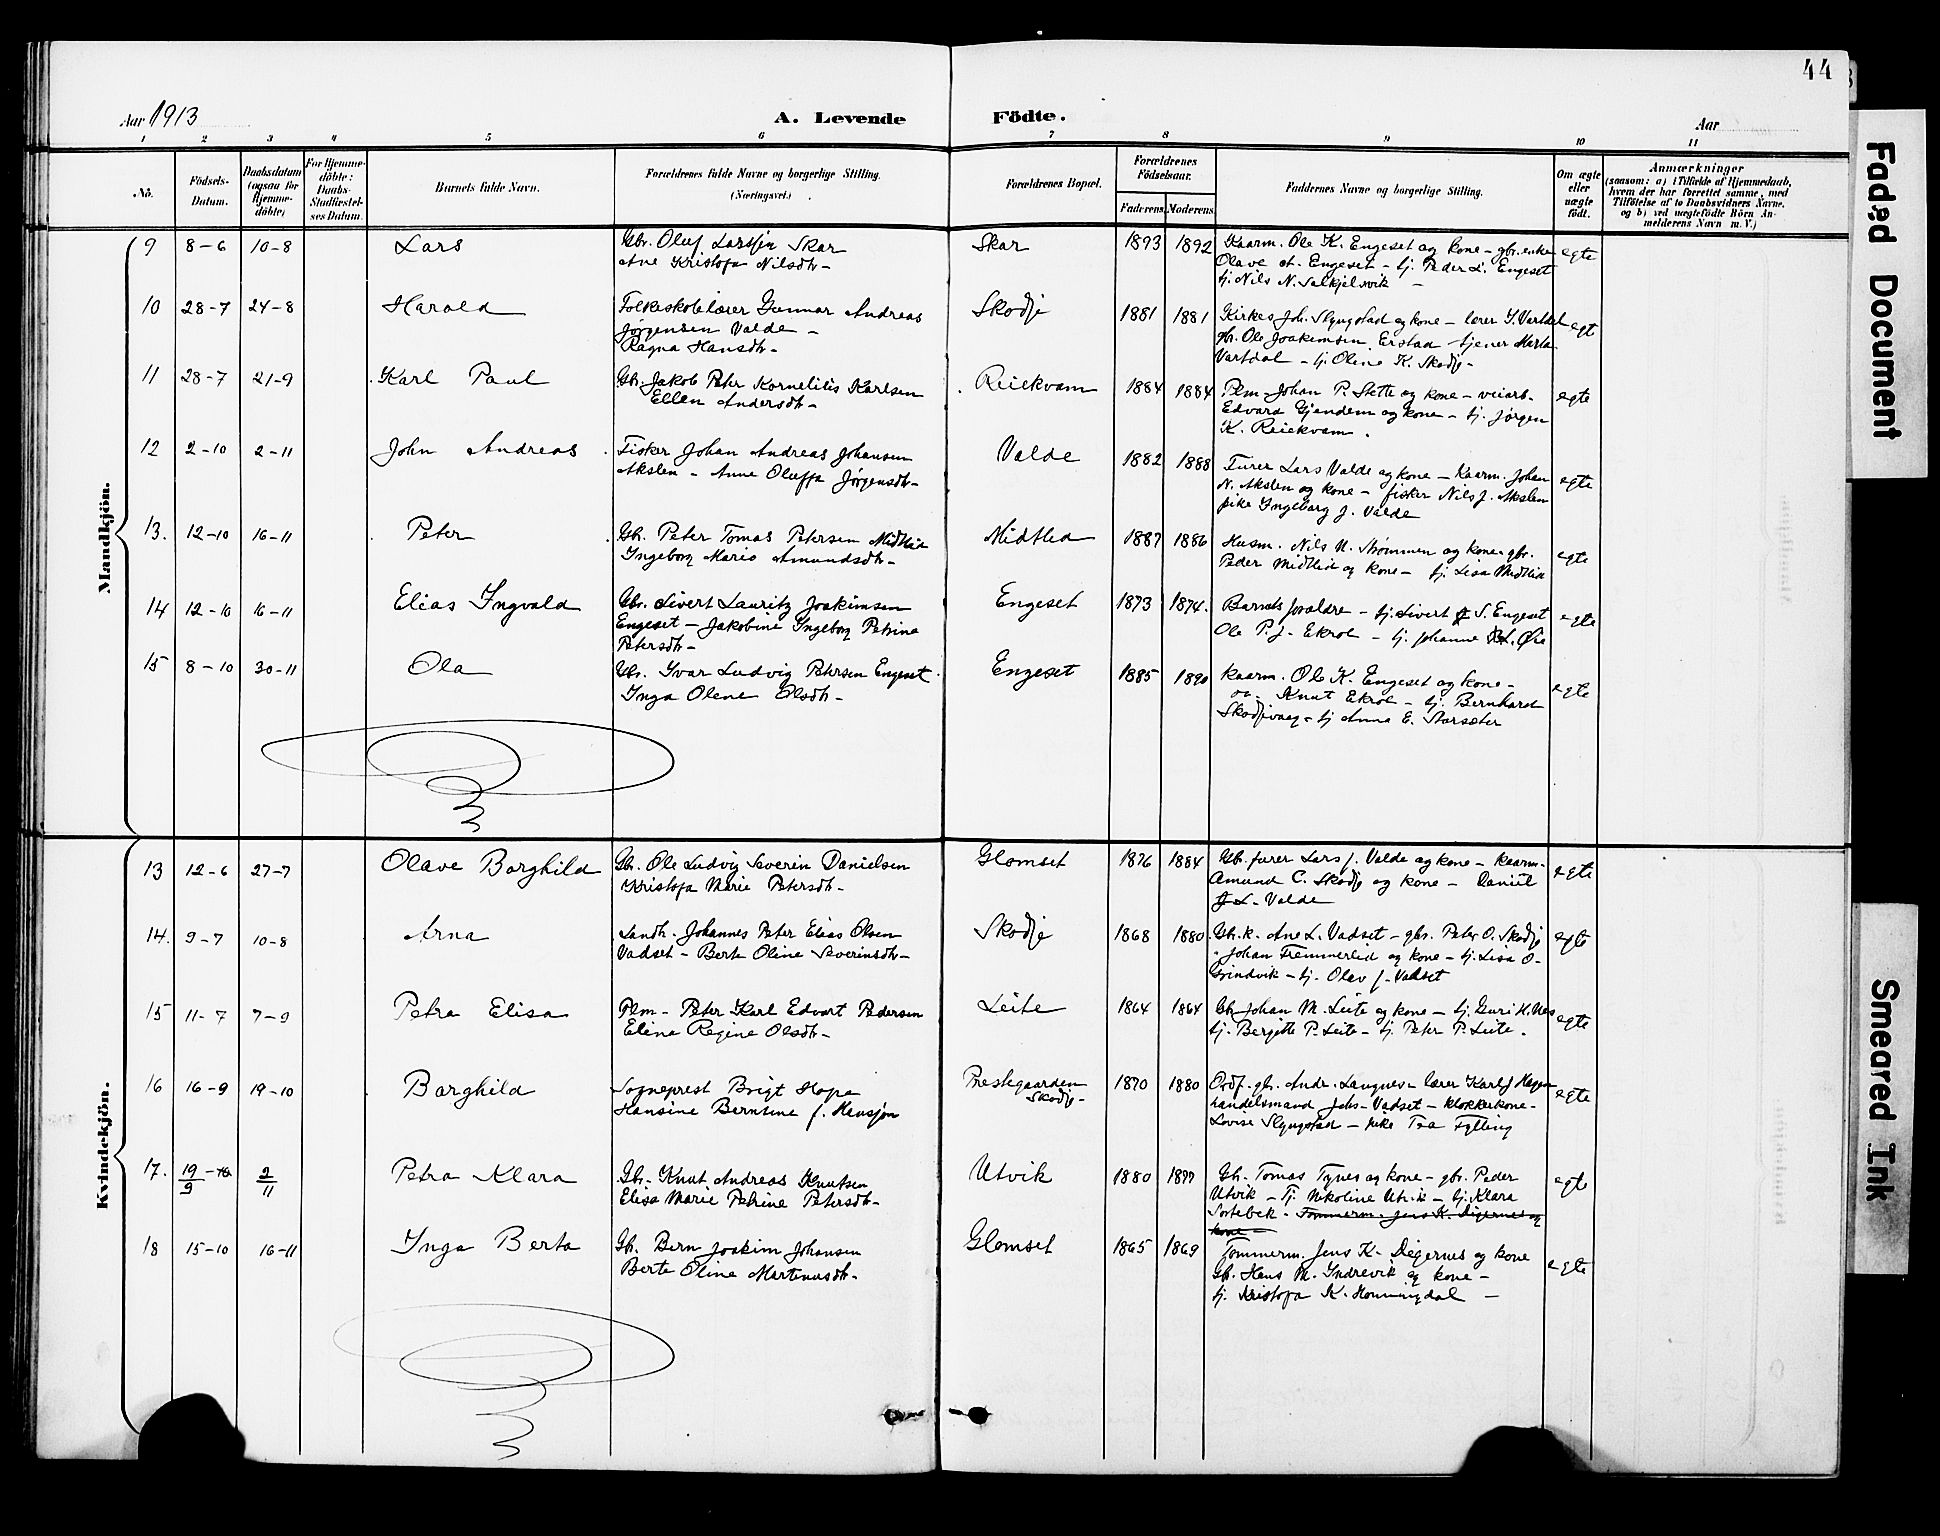 44
Aar 1913
A. Levende Födte.
Aar
1 2 3 4 5 6 7 8 9 10 11
No.
Födsels-Datum.
Daabsdatum (ogsaa for Hjemme-döbte)
For Hjemme-döbte: Daabs-Stadfæstel-ses Datum.
Barnets fulde Navn.
Forældrenes fulde Navne og borgerlige Stilling. (Næringsvei.)
Forældrenes Bopæl.
Forældrenes Födselsaar.
Faderens. Moderens.
Faddernes Navne og borgerlige Stilling.
Om ægte eller uægte födt.
Anmærkninger
(saasom: a) i Tilfælde af Hjemmedaab,
hvem der har forrettet samme, med
Tilföielse af to Daabsvidners Navne.
og b) ved uægtefödte Börn An-
melderens Navn m. V.)
Mandkjön.
9 8-6 10-8 Lars
Gbr. Oluf Larssen Skar
Ane Kristofa Nilsdtr-
Skar 1893 1892
Kaarm. Ole K. Engeset og kone - gbr. enke
Olave A. Engeset - tj. Peder L. Engeset
tj. Nils N. Salkjelsvik -
egte
10 28-7 24-8 Harald
Folkeskolelærer Gunnar Andreas
Jørgensen Valde -
Ragna Hansdtr-
Skodje 1881 1881
Kirkes. Joh. Slyngstad og kone - lærer Vartdal
gbr. Ole Joakimsen Erstad - tjener Marta
Vartdal - tj. Oline K. Skodje-
egt
11 28-7 21-9 Karl Paul
Gb. Jakob Peter Kornelius Karlsen
Ellen Andersdtr-
Reiekvam 1884 1884
Plm. Johan P. Stette og kone - veiarb.
Edvard Gjendem og kone - tj. Jørgen
K. Reiekvam.
egte
12 2-10 2-11 John Andreas
Fisker Johan Andreas Johansen
Akslen - Anne Oluffa Jørgensdtr-
Valde 1882 1888
Furer Lars Valde og kone - Kaarm. Johan
N. Akslen og kone - fisker Nils J. Akslen
pike Ingeborg J. Valde
egte
13. 12-10 16-11 Peter
Gb. Peter Tomas Petersen Midtlid
Ingeborg Marie Amundsdtr-
Midtlid 1887 1886
Husm. Nils N. Strømmen og kone. gbr.
Peder Midtlid og kone - tj. Lisa Midtlid
egte
14 12-10 16-11 Elias Ingvald
Gbr. Sivert Lauritz Joakimsen
Engeset - Jakobine Ingeborg Petrine
Petersdtr-
Engeset 1873 1874.
Barnets forældre - tj. Sivert S. Engeset
Ole P. J. Ekrol - tj. Johanne Øie
egte
15 8-10 30-11 Ola
Gbr. Ivar Ludvig Petersen Engeset.
Inga Olene Olsdtr-
Engeset 1885 1890
Kaarm. Ole K. Engeset og kone -
Knut Ekrol - tj. Bernhard
Skodjevaag - tj Anna E. Storsæter
egte
Kvindekjön.
13 12-6 27-7 Olave Borghild
Gb. Ole Ludvig Severin Danielsen
Kristofa Marie Petersdtr-
Glomset 1876 1884
Gb. furer Lars J. Valde og kone - Kaarm-
Amund C. Skodje og kone - Daniel
L. Valde
egte
14. 9-7 10-8 Arna
Landh. Johannes Peter Elias Olsen
Vadset - Berte Oline Severinsdtr-
Skodje 1868 1880
Gb.k. Ane L. Vadset - gbr. Peter O. Skodje
- Johan Fremmerlid og kone - tj. Lisa O-
Grindvik - tj. Olav J. Vadset
egte
15 11-7 7-9 Petra Elisa
Plm- Peter Karl Edvart Pedersen
Elina Regine Olsdtr-
Leite 1864 1864
Gb. Johan M. Leite og kone - tj. Guri H. Nes
tj. Bergitte P. Leite - tj. Peter P. Leite.
egte
16 16-9 19-10 Borghild
Sogneprest Brigt Hope
Hansine Berntine f. Hansson
Prestegaarden
Skodje- 1870 1880
Ordf. gbr. Andr. Langnes - lærer Karl J Haagen
handelsmand Johs- Vadset - klokkerkone-
Lovise Slyngstad - pike Tea Fylling
egte
17. 19/9 2/11 Petra Klara
Gbr. Knut Andreas Knutsen
Elisa Marie Petrine Petersdtr-
Utvik 1880
Gb. Tomas Tynes og kone - gbr. Peder
Utvik - Tj. Nikoline Utvik - tj. Klara
Sortebek - Tømmerm. Jens K. Digernes og
kone
egte
18 15-10 16-11 Inga Berta
Gb. Bern Joakim Johansen
Berte Oline Martinusdtr-
Glomset 1865 1869
Tømmerm. Jens K- Digernes og kone
Gb. Hans M. Indrevik og kone -
tj. Kristofa K. Honningdal -
egte
Faded Document
Smeared Ink